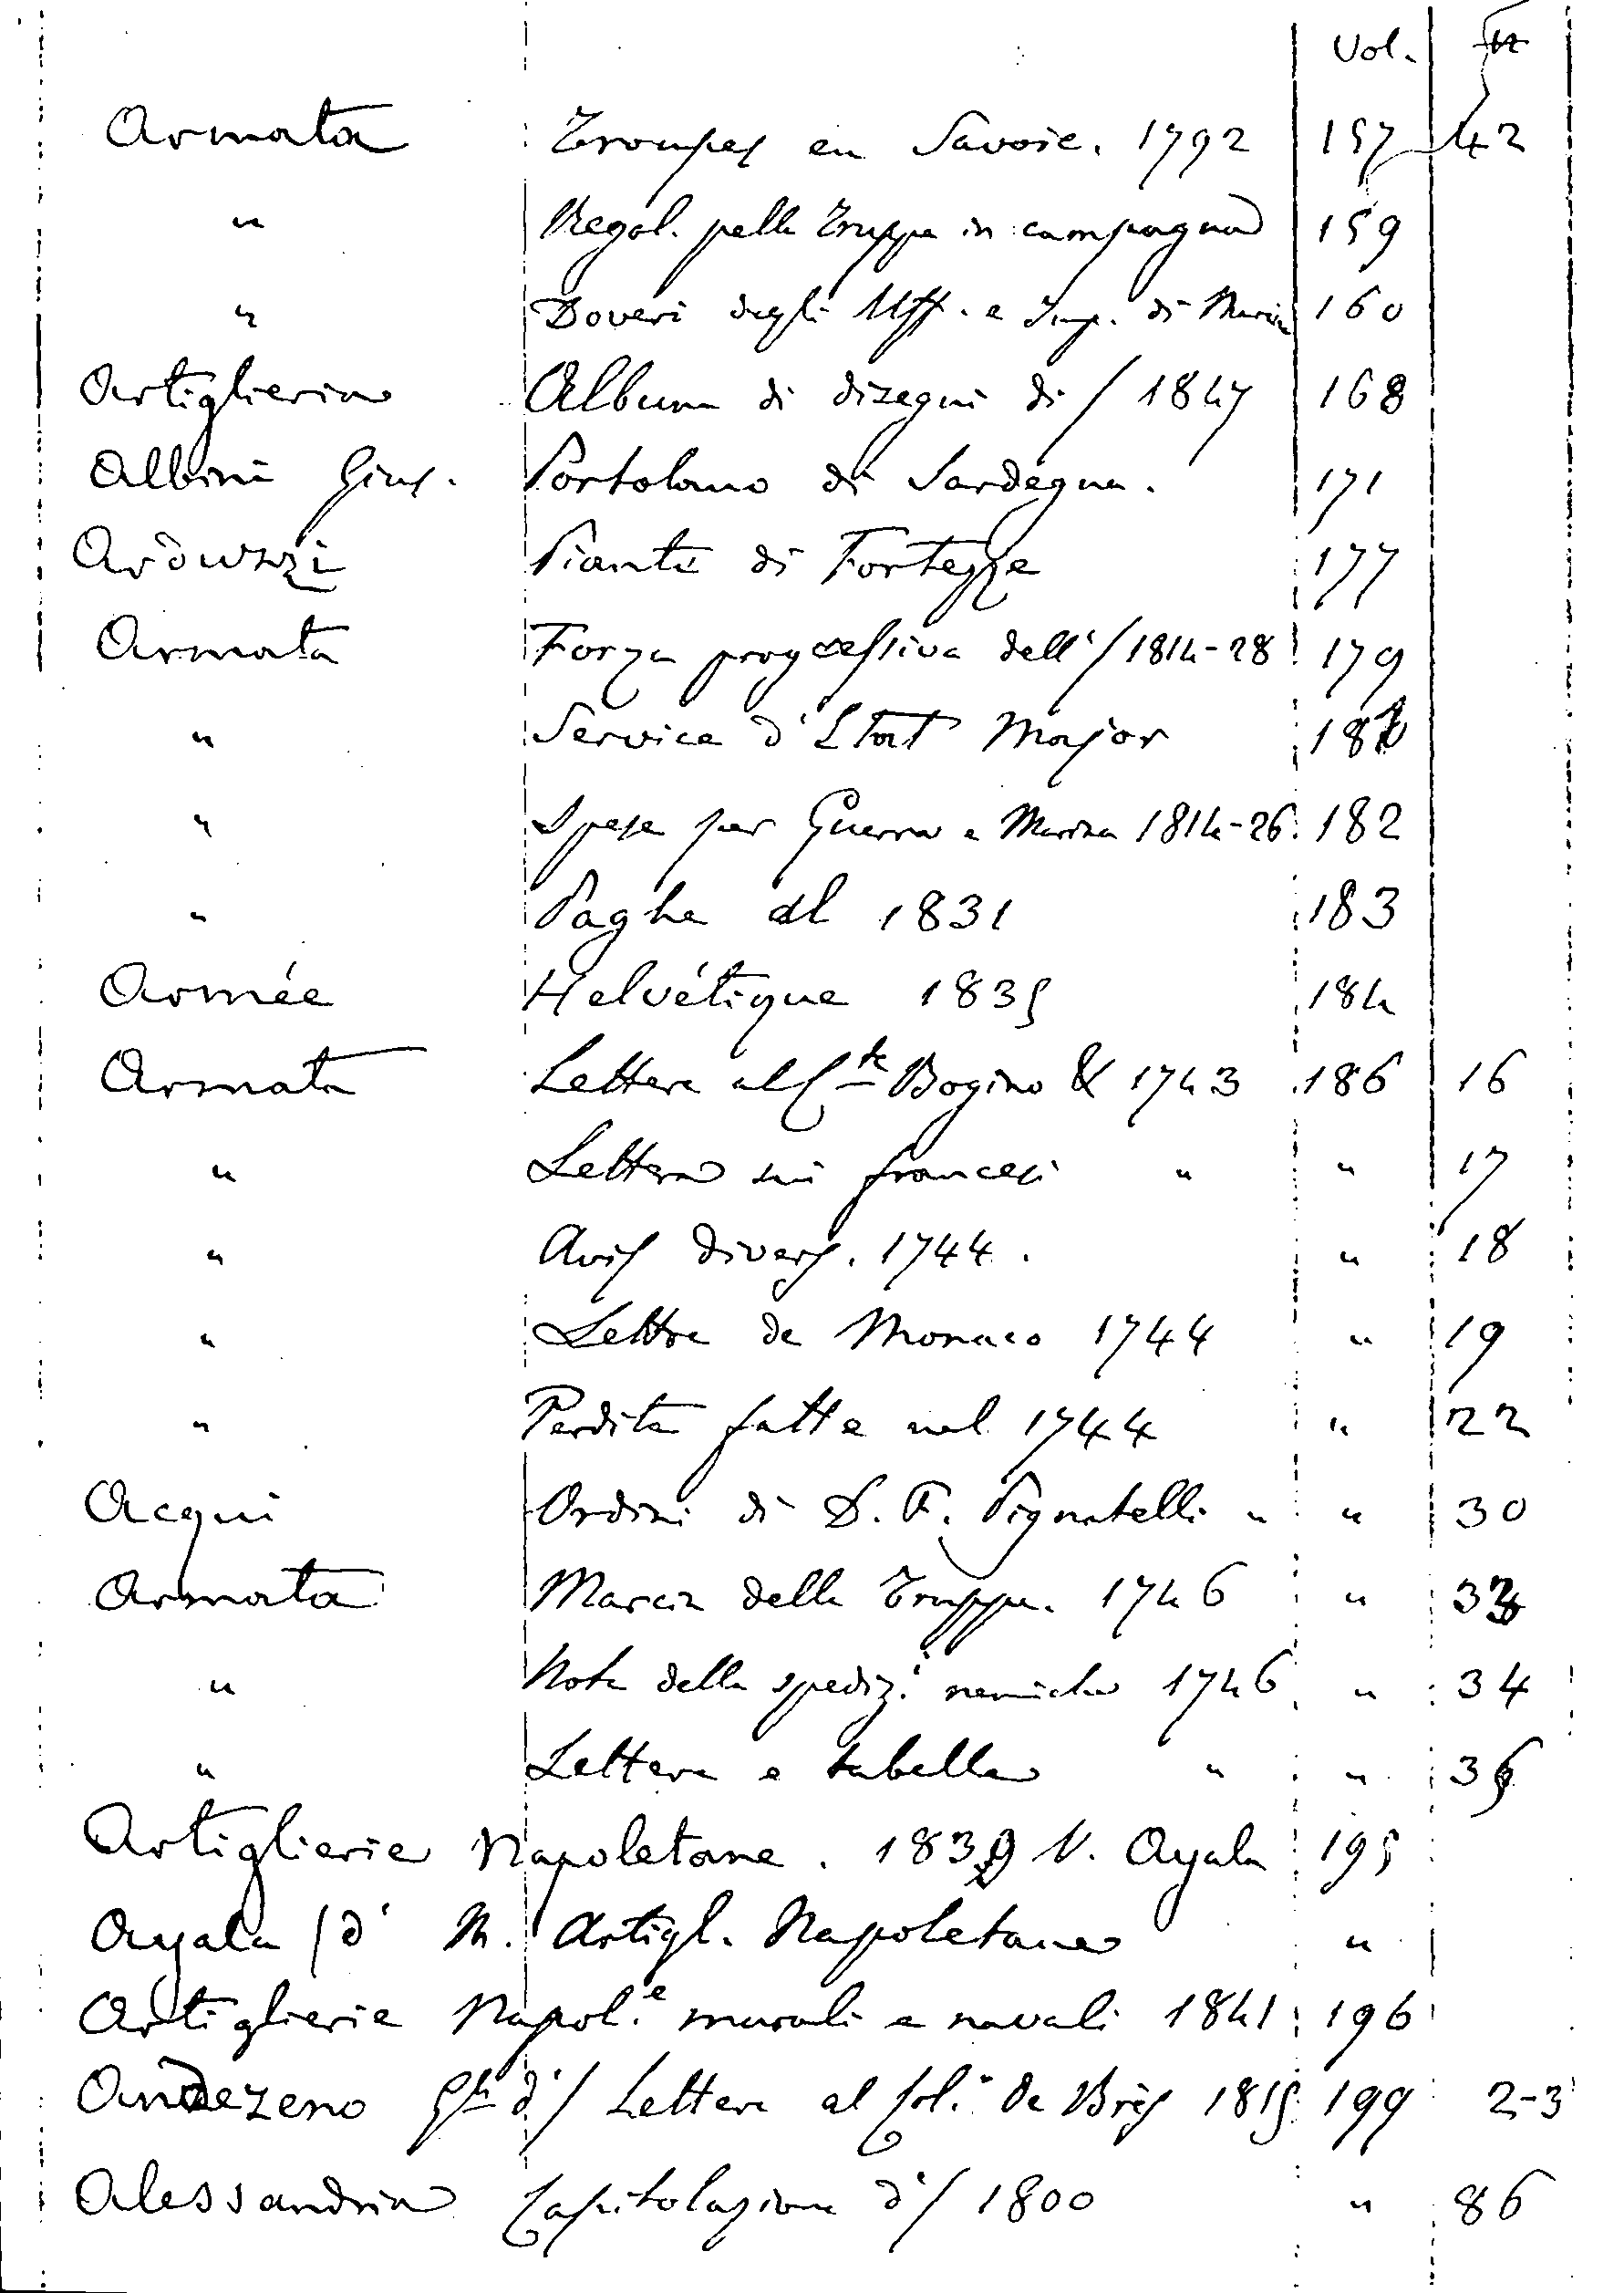 Vol. N
Armata Troupes en Savoie. 1792 157 42
" Regol. pelle Truppe in campagna 159
" Doveri degli Uff. e Imp. di Marina 160
Artiglieria Album di dizegni di / 1847 168
Albini Gius. Portolano di Sardegna. 171
Arduzzi Piante di Fortezze 177
Armata Forza progressiva dell'/ 1814-28 179
" Service d'Etat Major 180
" Spese per Guerra e Marina 1814-26 182
" Paghe al 1831 183
Armée Helvétique 1835 184
Armata Lettere al Cte Bogino & 1743 186 16
" Lettera sui francesi " " 17
" Avis divers. 1744. " 18
" Lettre de Monaco 1744 " 19
" Perdite fatte nel 1744 " 22
Acqui Ordini di D. F. Pignatelli " " 30
Armata Marcia delle Truppe. 1746 " 33
" Nota delle spediz.i nemiche 1746 " 34
" Lettere e tabelle " " 35
Artiglierie Napoletane. 1839 V. Ayala 195
Ayala / d' M. Artigl. Napoletane "
Artiglierie Napol.e murali e navali 1841 196
Andezeno d'/ Lettere al Col. De Brés 1815 199 2-3
Alessandria Capitolazione d'/ 1800 " 86